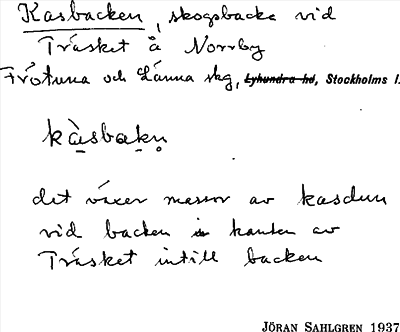 Kasbacken, skogsbacke vid
Träsket å Norrby
Frötuna och Länna skg, Lyhundra hd, Stockholms l.
kàsbakn̥
det växer massor av kasdun
vid backen i kanten av
Träsket intill backen
JÖRAN SAHLGREN 1937